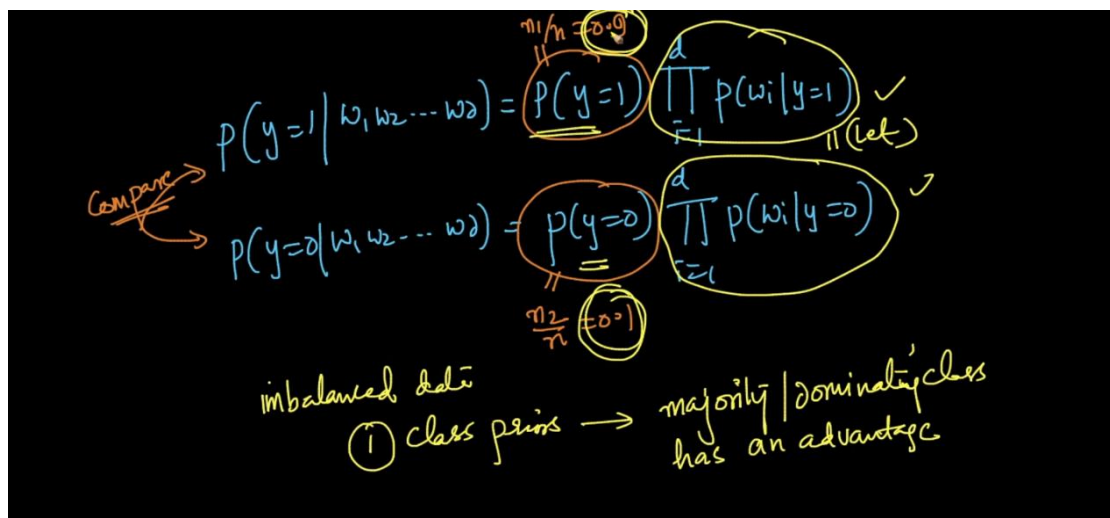 n1/n = 0.9
P(y=1 | w1 w2 ... wd) = P(y=1) d ∏ i=1 P(wi | y=1) ✓
|| (let)
Compare
P(y=0 | w1 w2 ... wd) = P(y=0) d ∏ i=1 P(wi | y=0) ✓
n2/n = 0.1
imbalanced data
① class priors → majority / dominating class
has an advantage